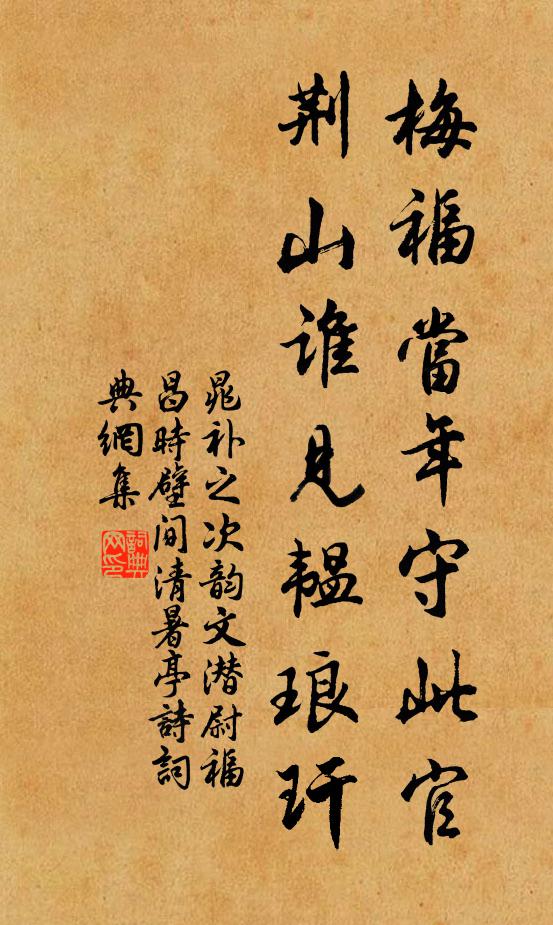 梅福當年守此官
荆山谁見韞琅玕
晁补之次韵文潜尉福
昌時壁间清暑亭詩詞
典網集
詞典网印